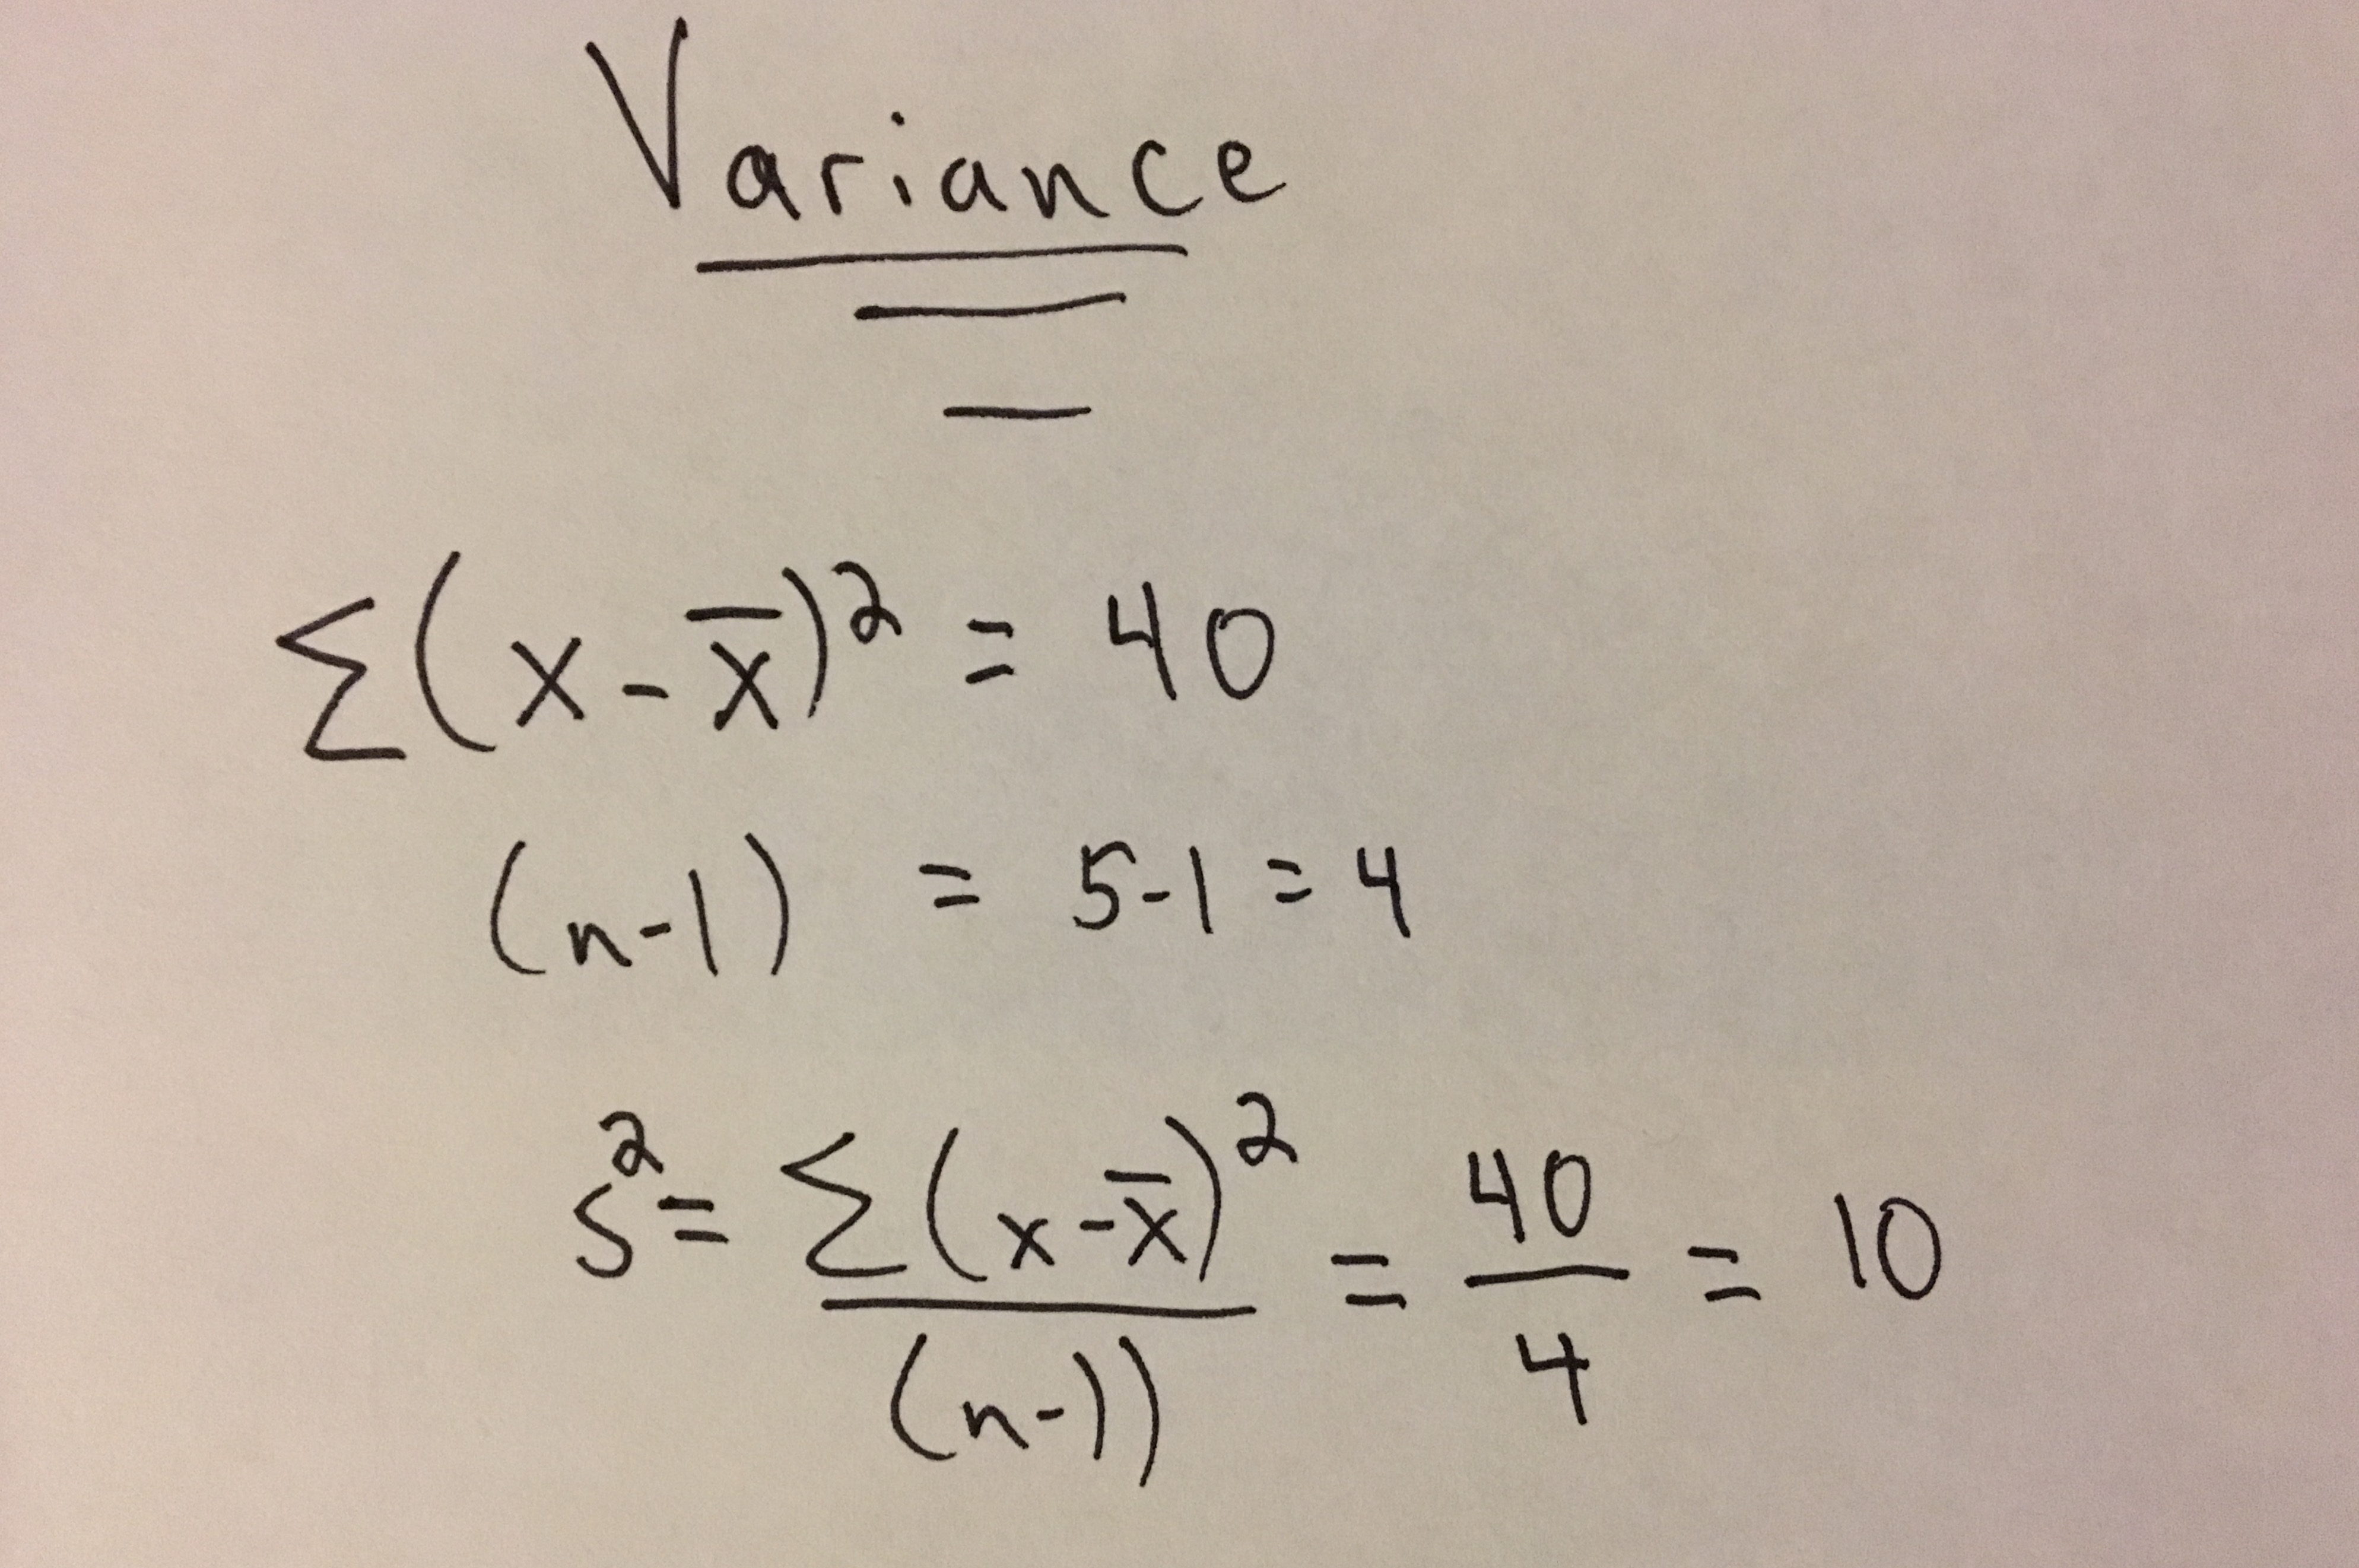 Variance
Σ(x-x̄)² = 40
(n-1) = 5-1=4
s²= Σ(x-x̄)²/(n-1) = 40/4 = 10